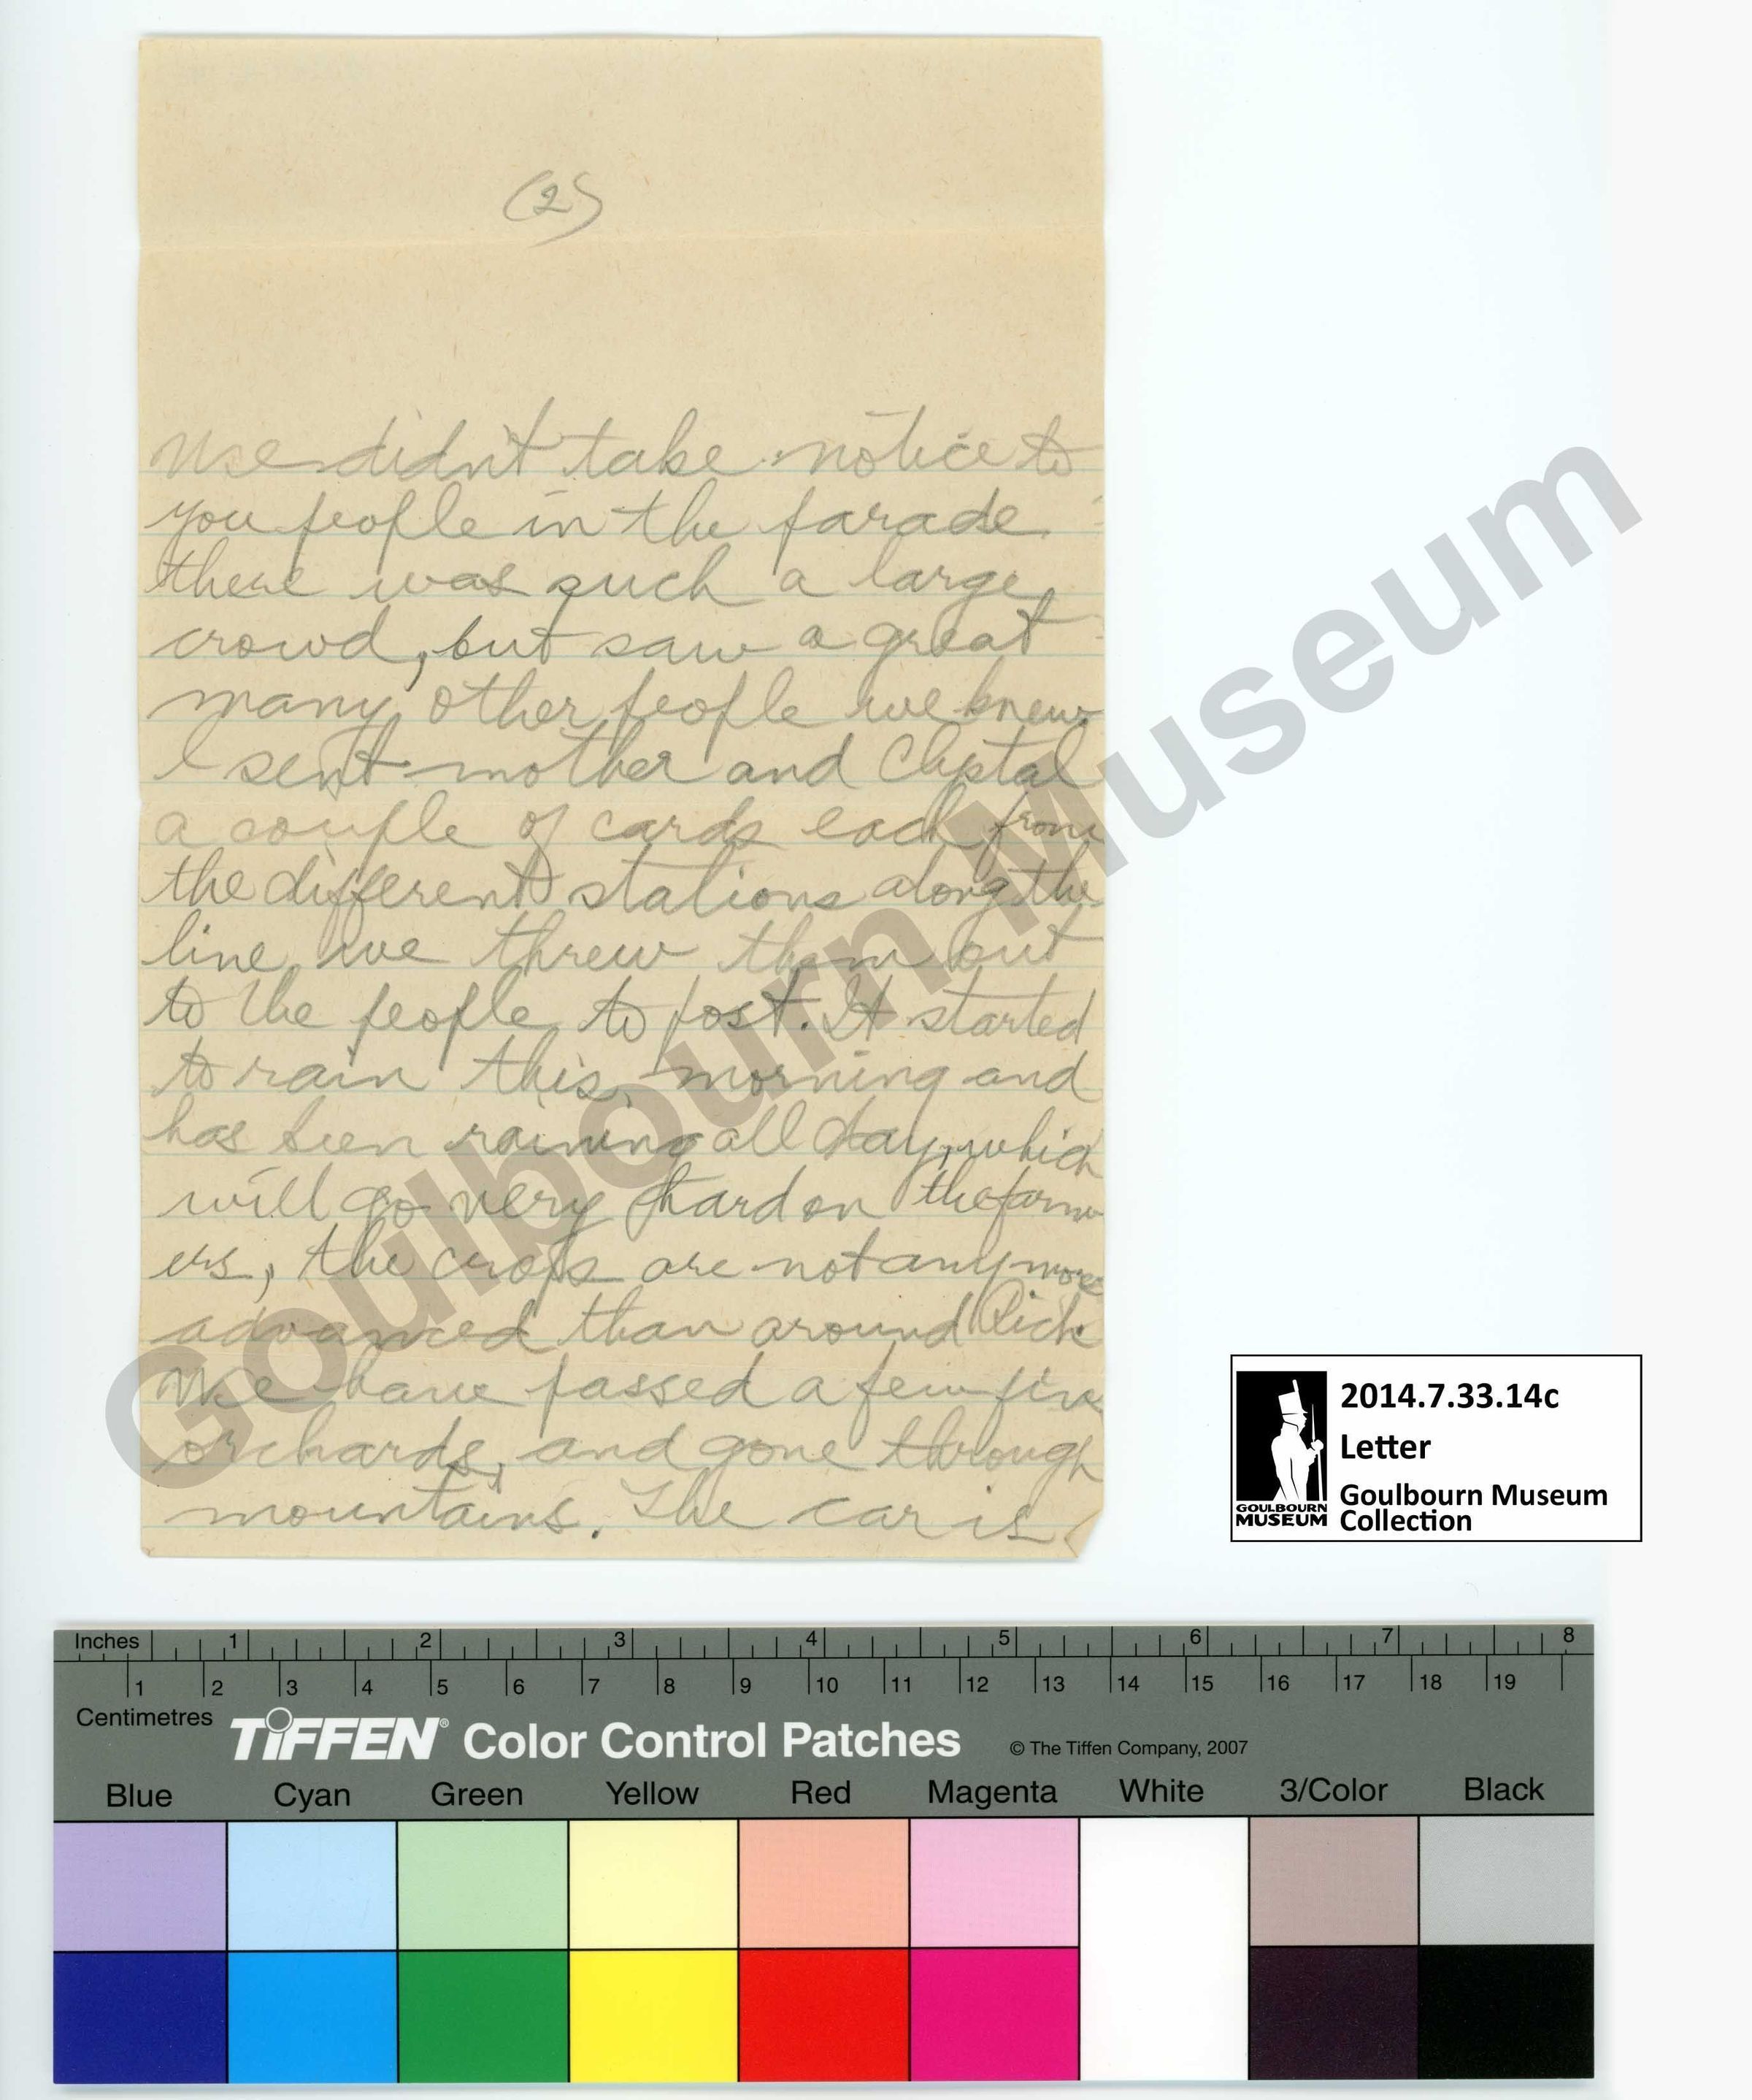 (2)
We didn't take notice to
you people in the parade
there was such a large
crowd, but saw a great
many other people we knew
I sent mother and
a couple of cards each from
the different stations along the
line, we threw them out
to the people to post. It started
to rain this morning and
has been raining all day, which
will go very hard on the farm
ers, the crops are not any more
advanced than around Rich
We have passed a few fine
orchards, and gone through
mountains. The car is
Goulbourn Museum
2014.7.33.14c
Letter
Goulbourn Museum
Collection
GOULBOURN
MUSEUM
Inches 1 2 3 4 5 6 7 8
1 2 3 4 5 6 7 8 9 10 11 12 13 14 15 16 17 18 19
Centimetres
TIFFEN® Color Control Patches © The Tiffen Company, 2007
Blue Cyan Green Yellow Red Magenta White 3/Color Black